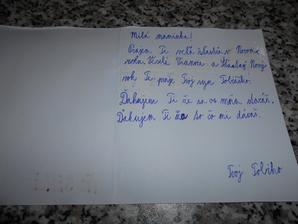 Milá maminka!
Prajem Ti veľa šťastia v Novom
roku, Veselé Vianoce a šťastný Nový
rok Ti praje Tvoj syn Tobiáško.
Ďakujem Ti že sa os mňa staráš.
Ďakujem Ti že so čo mi dávaš.
Tvoj